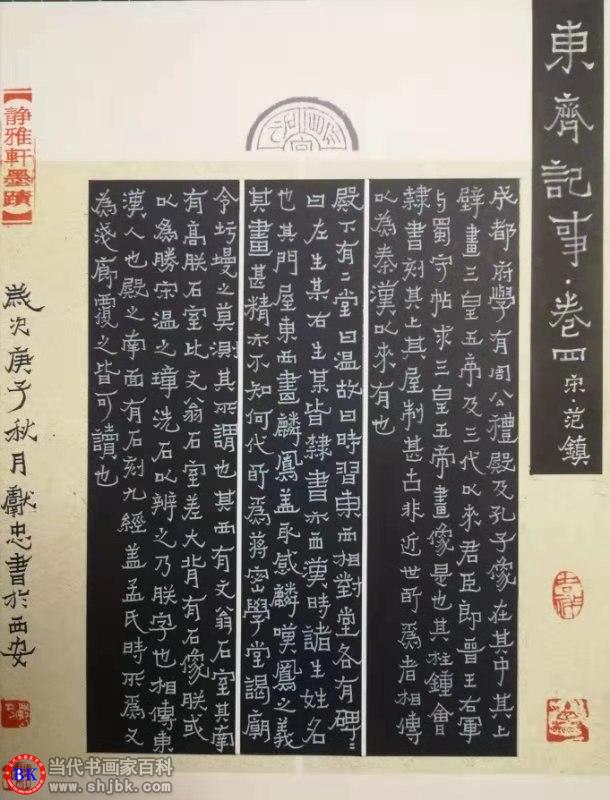 東齊記事·卷四 宋范鎮
成都府學有周公禮殿及孔子像在其中其上
壁畫三皇五帝及三代以來君臣即晉王右軍
与蜀守帖求三皇五帝畫像是也其柱鍾會
隸書刻其上其屋制甚古非近世所為者相傳
以為秦漢以來有也
殿下有二堂曰温故曰時習東西相對堂各有碑〻
曰左生某右生某皆隸書亦西漢時諸生姓名
也其門屋東西畫麟鳳盖取感麟嘆鳳之義
其畫甚精亦不知何代所為蔣密學堂謁廟
令圬墁之莫測其所謂也其西有文翁石室其南
有高朕石室比文翁石室差大背有石像朕或
以為勝宋温之璋洗石以辨之乃朕字也相傳東
漢人也殿之南面有石刻九經盖孟氏時所為又
為淺廊覆之皆可讀也
【静雅軒墨蹟】
歲次庚子秋月獻忠書於西安
BK
当代书画家百科
www.shjbk.com